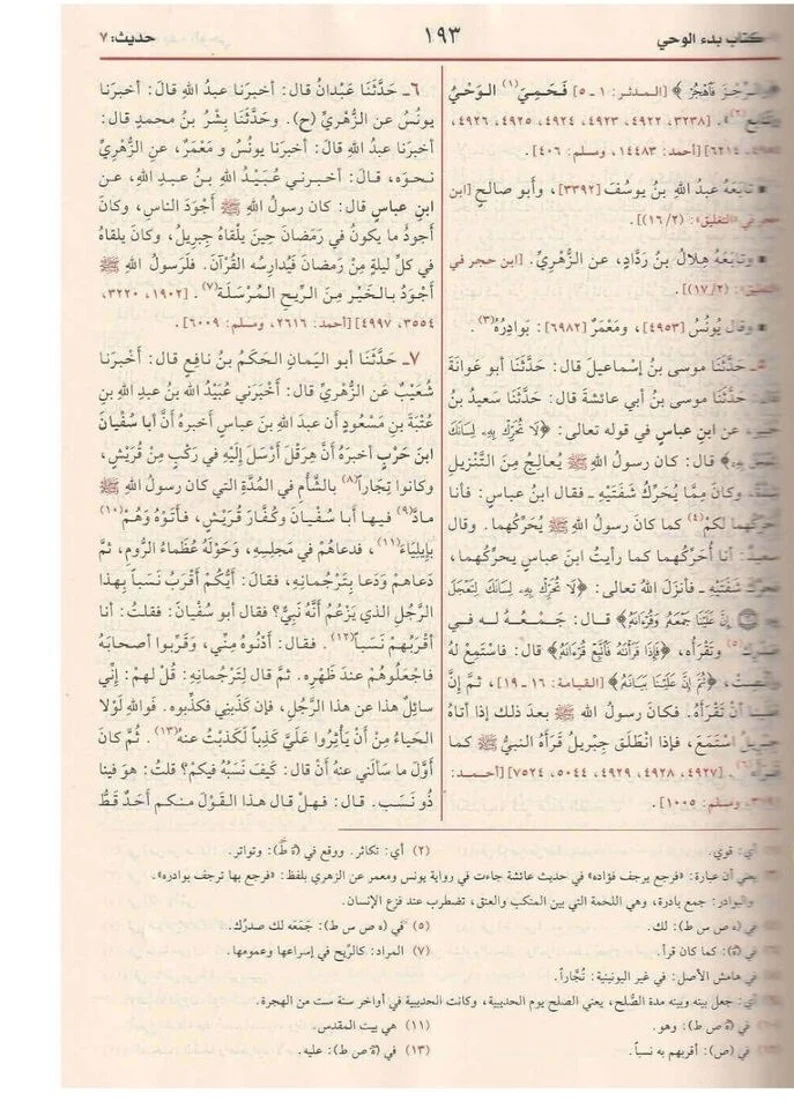 كتاب بدء الوحي
١٩٣
حديث: ٧
فَٱهْجُرْ﴾ [المدثر: ١ ـ ٥] فَحَمِيَ(١) الوَحْيُ
[٣٢٣٨، ٤٩٢٢، ٤٩٢٣، ٤٩٢٤، ٤٩٢٥، ٤٩٢٦،
٦٢١٤] [أحمد: ١٤٤٨٣، ومسلم: ٤٠٦].
▪ تابَعَهُ عبدُ اللهِ بنُ يوسُفَ [٣٣٩٢]، وأَبو صالحٍ [ابن
حجر في «التغليق»: (١٦/٢)].
▪ وتابَعَهُ هِلالُ بنُ رَدَّادٍ، عن الزُّهْرِيِّ. [ابن حجر في
(١٧/٢)].
▪ وقال يُونُسُ [٤٩٥٣]، ومَعْمَرٌ [٦٩٨٢]: بَوادِرُهُ(٣).
حَدَّثَنا موسى بنُ إسْماعيلَ قال: حَدَّثَنا أبو عَوانَةَ
حَدَّثَنا موسى بنُ أبي عائشةَ قال: حَدَّثَنا سَعيدُ بنُ
عن ابنِ عباسٍ في قوله تعالى: ﴿لَا تُحَرِّكْ بِهِۦ لِسَانَكَ
بِهِۦ﴾ قال: كان رسولُ اللهِ ﷺ يُعالِجُ مِنَ التَّنْزيلِ
وكانَ مِمَّا يُحَرِّكُ شَفَتَيْهِ ـ فقال ابنُ عباسٍ: فأنا
لكمْ(٤) كما كان رسولُ اللهِ ﷺ يُحَرِّكُهما. وقال
سعيدٌ: أنا أُحَرِّكُهما كما رأيتُ ابنَ عباسٍ يحرِّكُهما،
شَفَتَيْهِ ـ فأنزلَ اللهُ تعالى: ﴿لَا تُحَرِّكْ بِهِۦ لِسَانَكَ لِتَعْجَلَ
إِنَّ عَلَيْنَا جَمْعَهُۥ وَقُرْءَانَهُۥ﴾ قـال: جَـمْـعُـهُ لـه فـي
(٥) وتَقْرَأَه، ﴿فَإِذَا قَرَأْنَٰهُ فَٱتَّبِعْ قُرْءَانَهُۥ﴾ قال: فاسْتَمِعْ لهُ
﴿ثُمَّ إِنَّ عَلَيْنَا بَيَانَهُۥ﴾ [القيامة: ١٦ ـ ١٩]، ثم إنَّ
أنْ تَقْرَأَهُ. فكانَ رسولُ الله ﷺ بعدَ ذلك إذا أتاهُ
جبريلُ اسْتَمَعَ، فإذا انْطَلَقَ جِبْريلُ قَرَأَهُ النبيُّ ﷺ كما
(٦). [٤٩٢٧، ٤٩٢٨، ٤٩٢٩، ٥٠٤٤، ٧٥٢٤] [أحـمـد:
ومسلم: ١٠٠٥].
٦ـ حَدَّثَنا عَبْدانُ قال: أخبرَنا عبدُ اللهِ قالَ: أخبرَنا
يونُسُ عن الزُّهْريِّ (ح). وحَدَّثَنا بِشْرُ بنُ محمدٍ قال:
أخبرَنا عبدُ اللهِ قالَ: أخبرَنا يونُس و مَعْمَرٌ، عنِ الزُّهْريِّ
نـحـوَه، قـالَ: أخـبـرنـي عُـبَـيْـدُ الله بـنُ عـبـدِ الله، عـن
ابنِ عباسٍ قال: كان رسولُ اللهِ ﷺ أَجْوَدَ الناسِ، وكانَ
أجودُ ما يكونُ في رَمَضانَ حِينَ يلْقاهُ جِبريلُ، وكان يلقاهُ
في كلِّ ليلةٍ مِنْ رَمضانَ فَيُدارِسُه القُرْآنَ. فلَرَسولُ اللهِ ﷺ
أَجْوَدُ بـالـخَـيْـرِ مِـنَ الـرِّيـحِ الـمُـرْسَـلَـةِ(٧). [١٩٠٢، ٣٢٢٠،
٣٥٥٤، ٤٩٩٧] [أحمد: ٢٦١٦، ومسلم: ٦٠٠٩].
٧ـ حَدَّثَنا أبو اليَمانِ الحَكَمُ بنُ نافِعٍ قال: أَخْبَرَنا
شُعَيْبٌ عَن الزُّهْريِّ قال: أَخْبَرَني عُبَيْدُ اللهِ بنُ عبدِ اللهِ بنِ
عُتْبَةَ بنِ مَسْعُودٍ أن عبدَ اللهِ بنَ عباسٍ أخبرهُ أنَّ أبا سُفْيانَ
ابنَ حَرْبٍ أخبرَهُ أنَّ هِرَقْلَ أَرْسَلَ إلَيْهِ في رَكْبٍ مِنْ قُرَيْشٍ،
وكانوا تِجَاراً(٨) بالشَّأْمِ في المُدَّةِ التي كان رسولُ اللهِ ﷺ
مادَّ(٩) فـيـهـا أبـا سُـفْيـانَ وكُفَّـارَ قُرَيْشٍ، فأتَوْهُ وَهُمْ(١٠)
بإيلِيَاءَ(١١)، فدعاهُمْ في مَجلِسِهِ، وَحَوْلَهُ عُظَماءُ الرُّومِ، ثمَّ
دَعاهـمْ وَدَعا بِتَرْجُمانِهِ، فقالَ: أَيُّكُمْ أقْرَبُ نَسَباً بِهذا
الرَّجُلِ الذي يَزْعُمُ أنَّهُ نَبِيٌّ؟ فقال أبو سُفْيانَ: فقلتُ: أنا
أقْرَبُهـمْ نَسَباً(١٢). فقال: أَدْنُوهُ مِنِّي، وَقَرِّبوا أصحابَهُ
فاجْعَلُوهُمْ عندَ ظَهْرِهِ. ثمَّ قال لِتَرْجُمانِهِ: قُلْ لهمْ: إنِّي
سائِلٌ هذا عن هذا الرَّجُلِ، فإن كَذَبَني فكذِّبوه. فواللهِ لَوْلا
الحَياءُ مِنْ أنْ يَأْثِرُوا عَلَيَّ كَذِباً لَكَذَبْتُ عنهُ(١٣). ثُمَّ كانَ
أوَّلَ ما سألَني عنهُ أنْ قال: كَيفَ نَسَبُهُ فيكمْ؟ قلتُ: هوَ فينا
ذُو نَسَبٍ. قال: فهـلْ قال هـذا القَـوْلَ مـنكـم أَحَـدٌ قَطُّ
أي: قوي.
(٢) أي: تكاثر. ووقع في (ة ط): وتواتر.
يعني أن عبارة: «فرجع يرجف فؤاده» في حديث عائشة جاءت في رواية يونس ومعمر عن الزهري بلفظ: «فرجع بها ترجف بوادره».
والبوادر: جمع بادرة، وهي اللحمة التي بين المنكب والعنق، تضطرب عند فزع الإنسان.
في (ه ص س ط): لك.
(٥) في (ه ص س ط): جَمَعَه لك صدرُك.
في (ة): كما كان قرأ.
(٧) المراد: كالرِّيح في إسراعها وعمومها.
في هامش الأصل: في غير اليونينية: تُجَّاراً.
أي: جعل بينه وبينه مدة الصُّلح، يعني الصلح يوم الحديبية، وكانت الحديبية في أواخر سنة ست من الهجرة.
في (ة ص ط): وهو.
(١١) هي بيت المقدس.
في (ص): أقربهم به نسباً.
(١٣) في (ة ص ط): عليه.